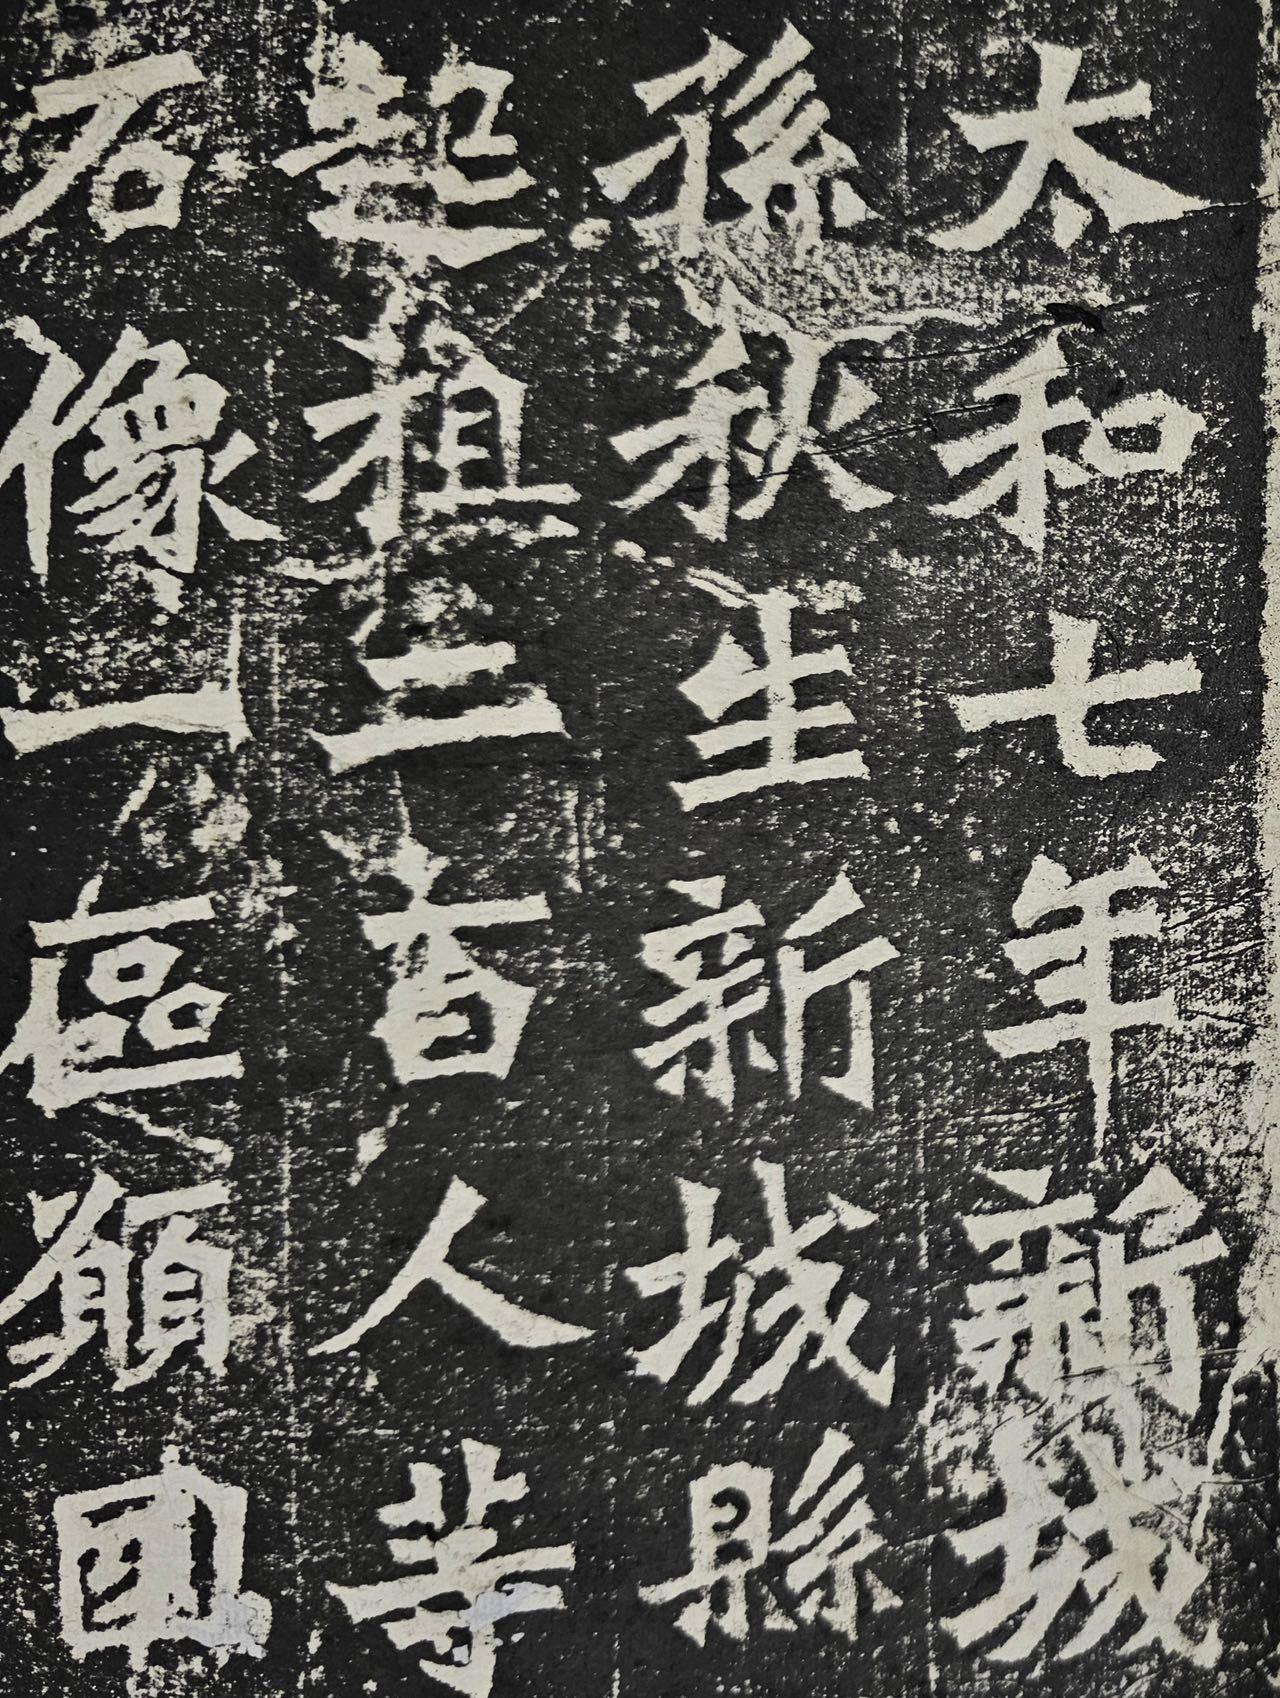 太和七年新城
孫秋生新城縣
起祖二百人等
石像一區願國